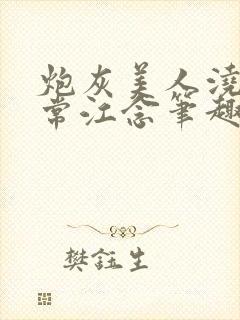 炮灰美人浇
常江念笔趣
樊钰生